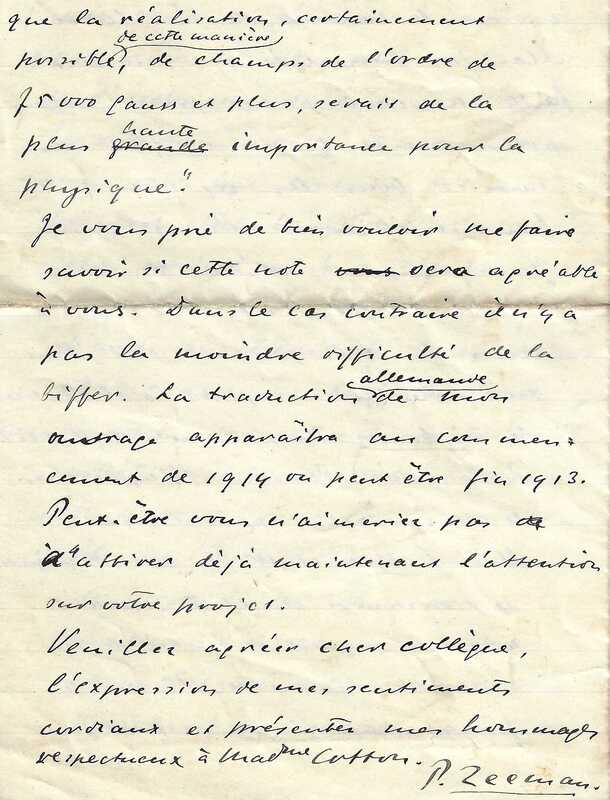 que la réalisation, certainement
de cette manière
possible, de champs de l'ordre de
75000 gauss et plus, serait de la
haute
plus grande importance pour la
physique".
Je vous prie de bien vouloir me faire
savoir si cette note vous sera agréable
à vous. Dans le cas contraire il n'y a
pas la moindre difficulté de la
allemande
biffer. La traduction de mon
ouvrage apparaîtra au commen=
cement de 1914 ou peut être fin 1913.
Peut-être vous n'aimeriez pas de
d'attirer déjà maintenant l'attention
sur votre projet.
Veuillez agréer cher collègue,
l'expression de mes sentiments
cordiaux et présenter mes hommages
respectueux à Madme Cotton.
P. Zeeman.